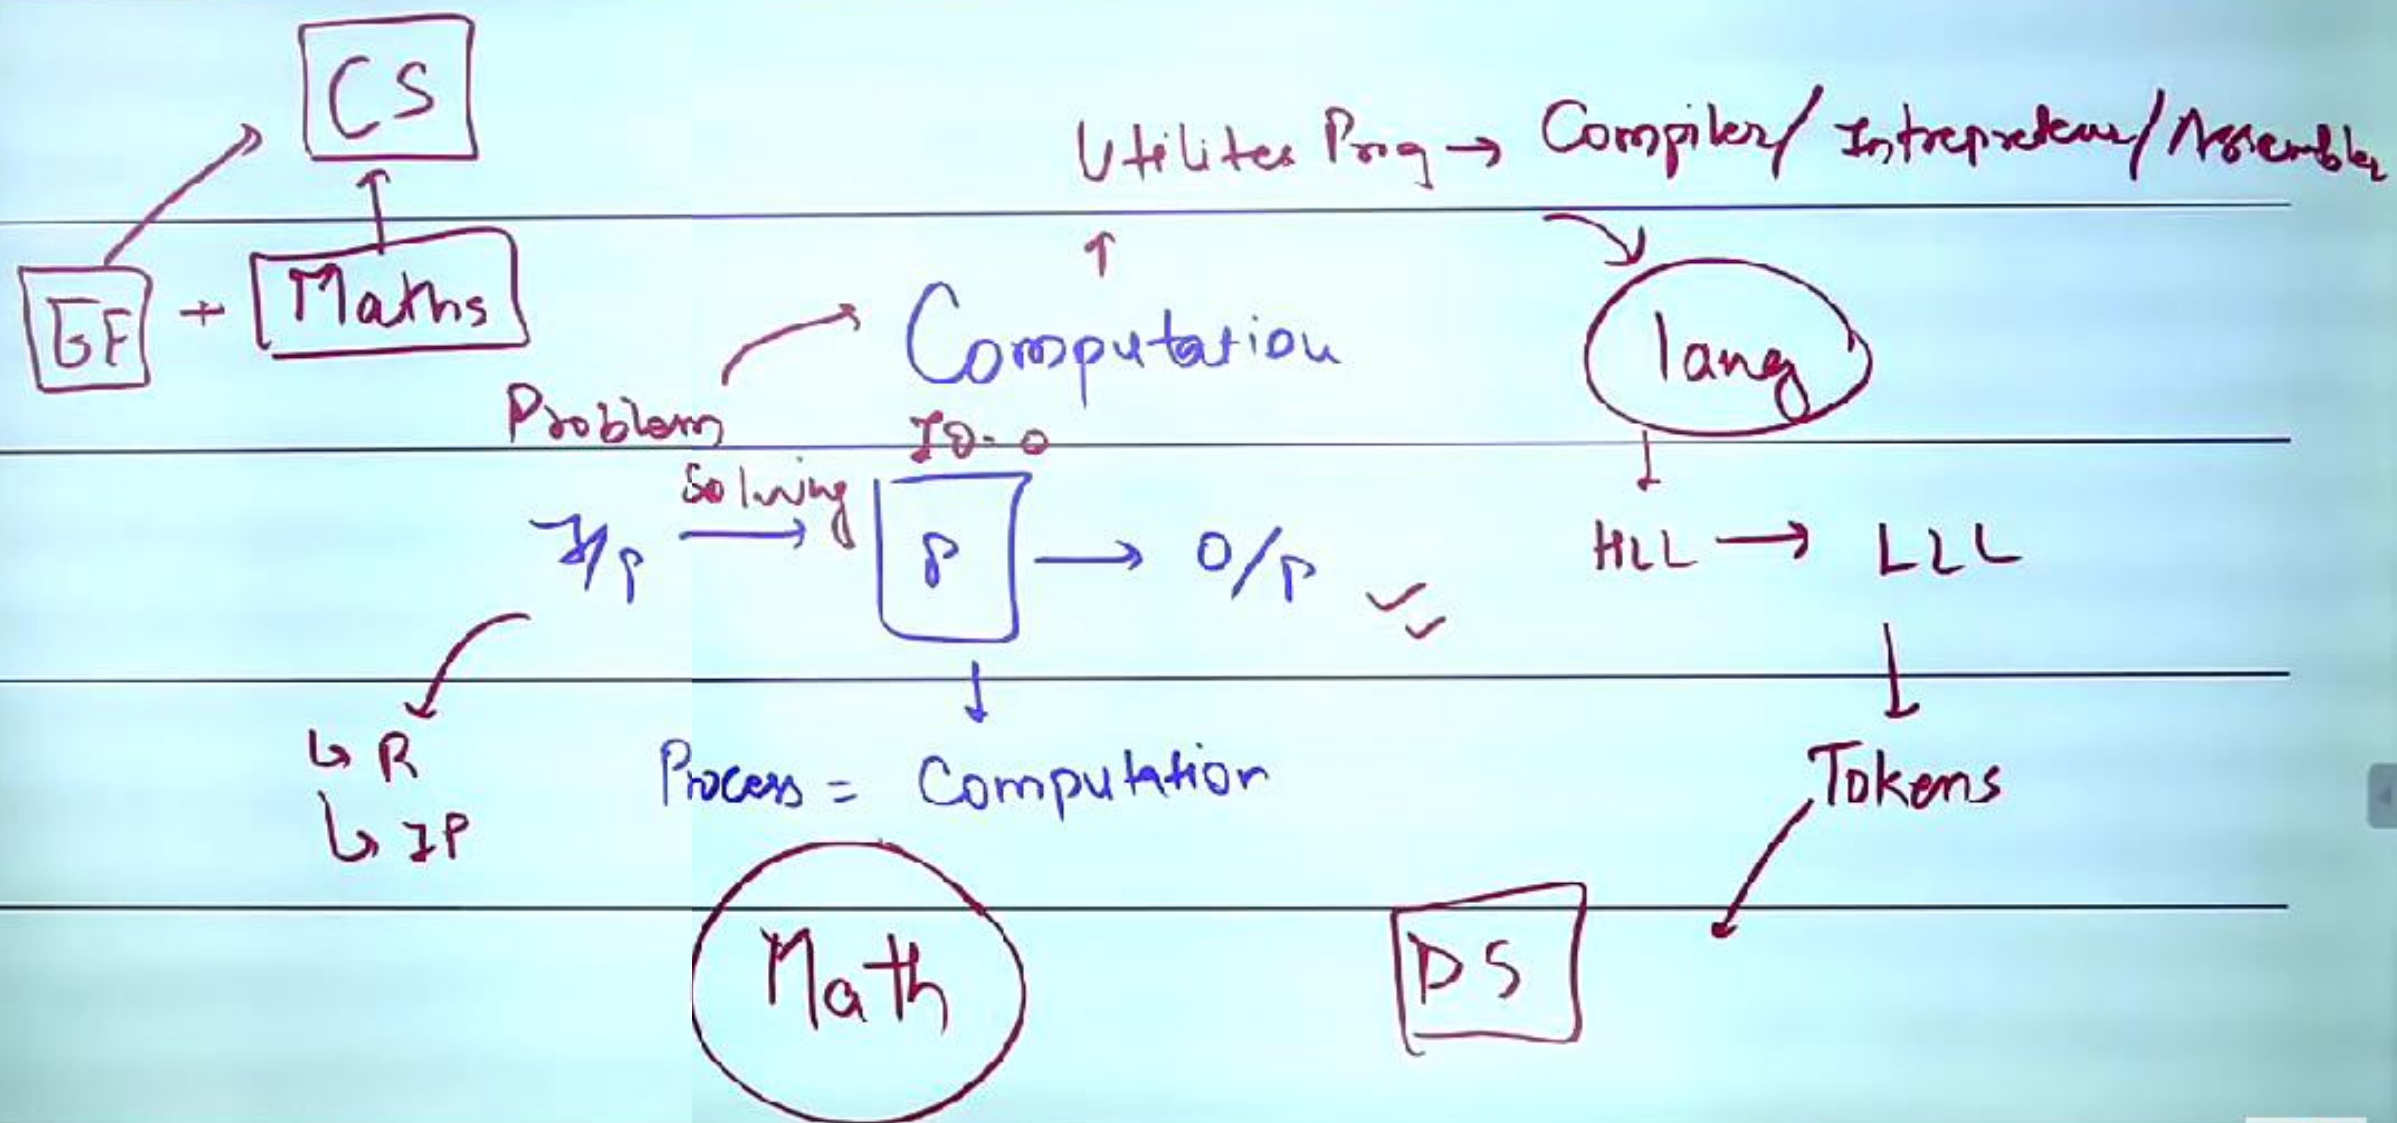 CS
Utilites Prog → Compiler/ Intrepreteur/ Assembler
GF + Maths
Computation
lang
Problem
Solving
I/P → P → O/P
HLL → LLL
↳ R
↳ IP
Process = Computation
Tokens
Math
DS